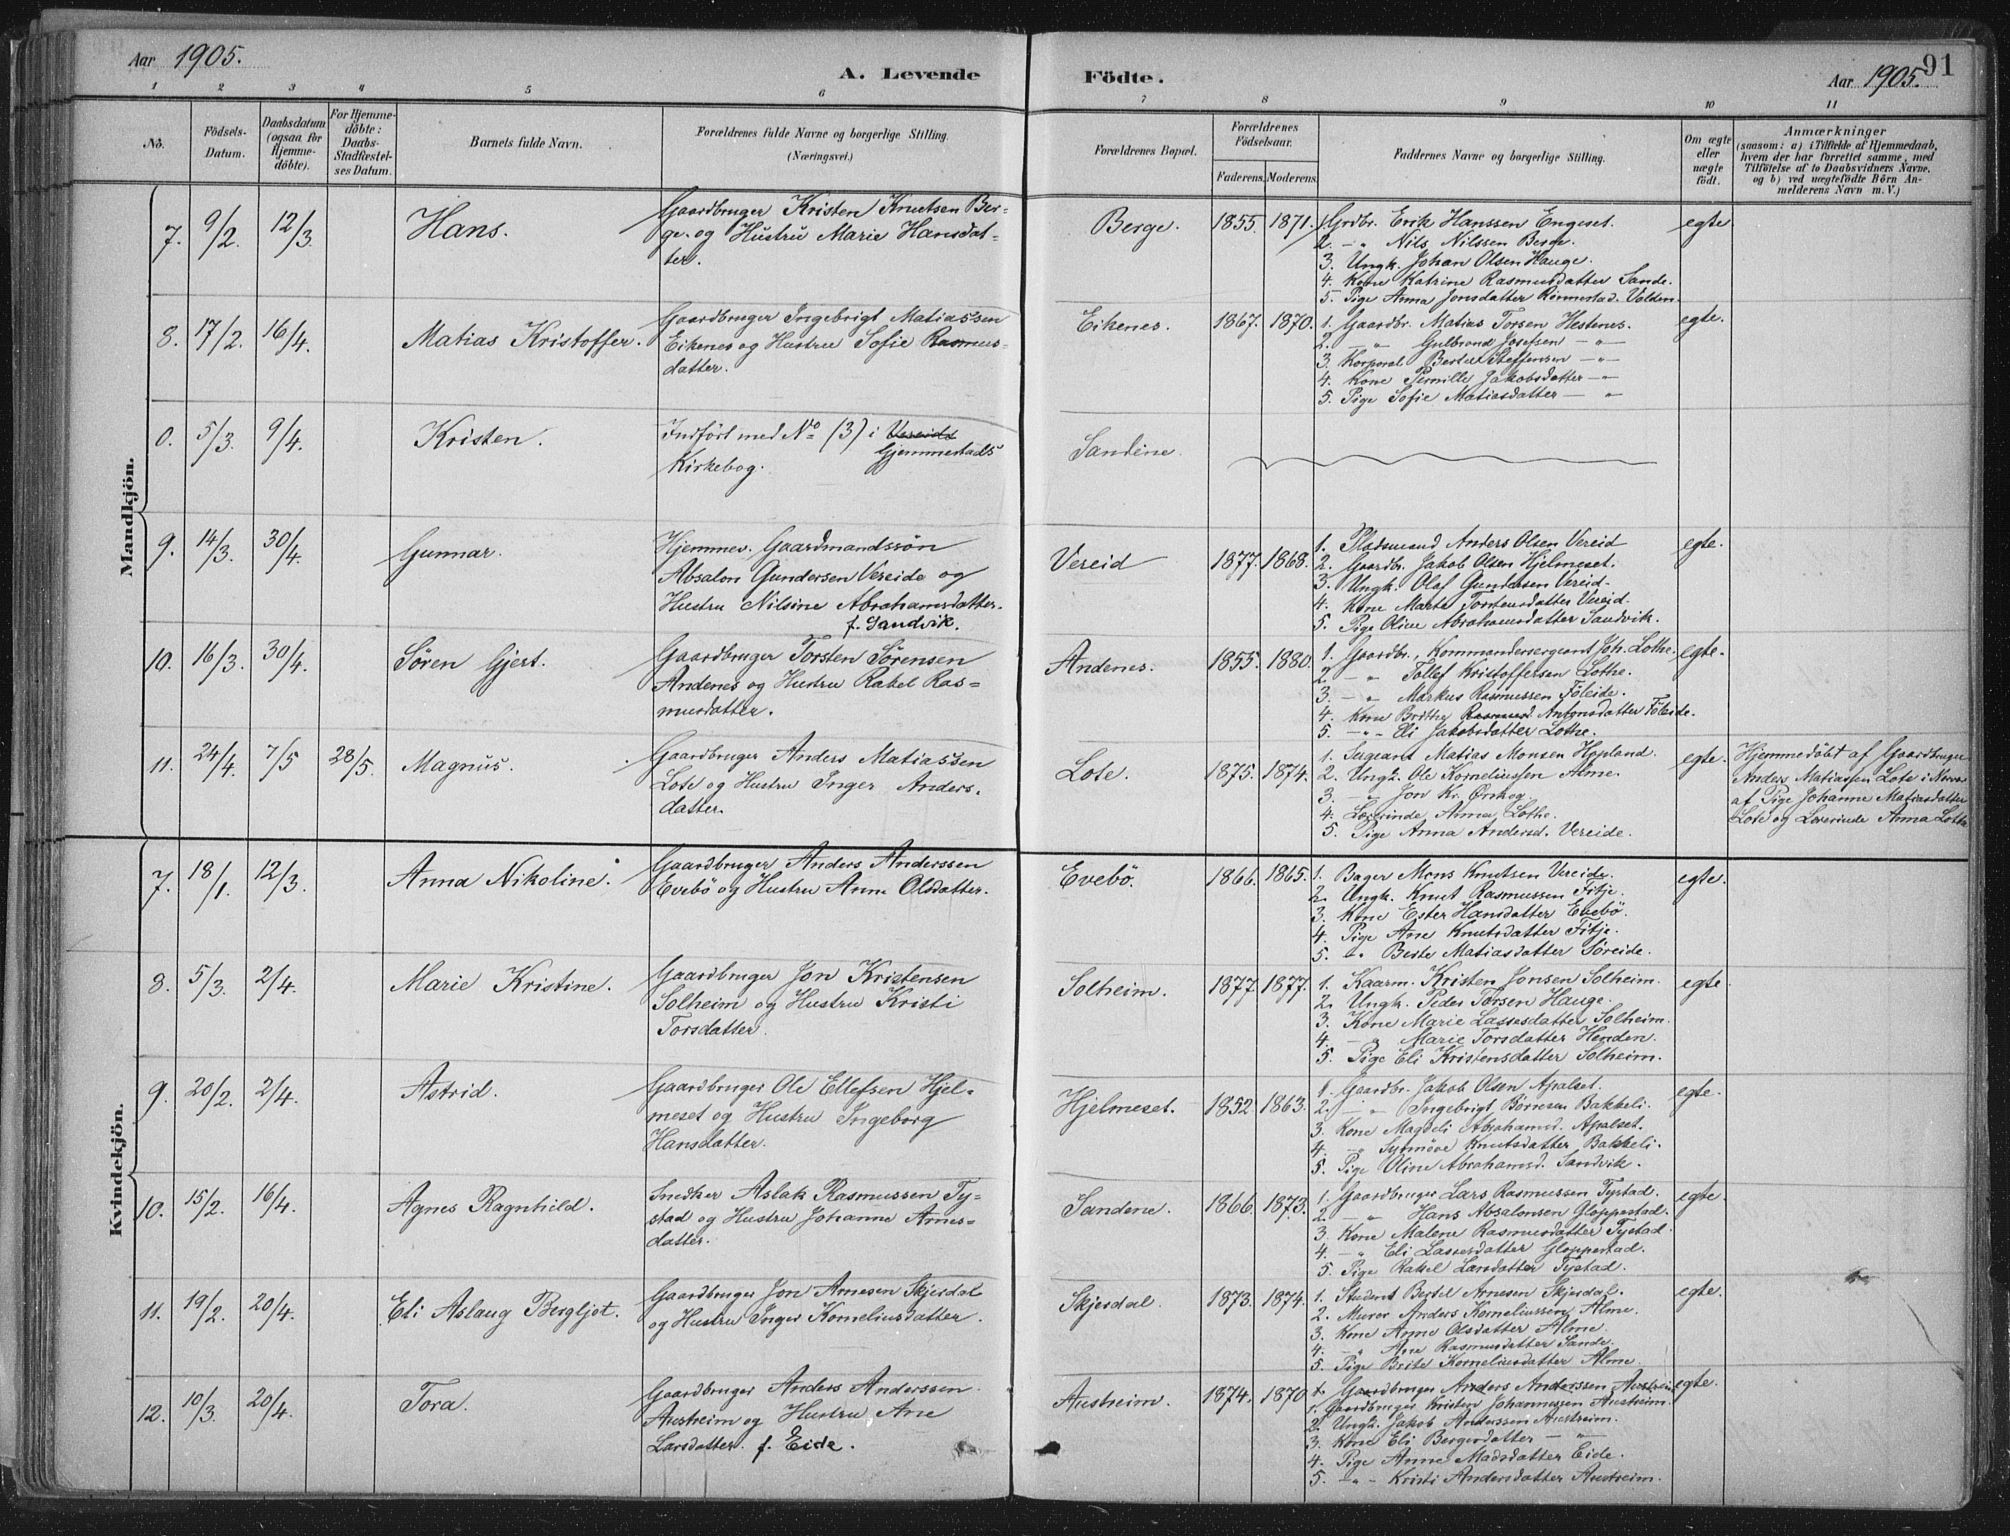 Aar 1905.
A. Levende Födte.
Aar 1905.
91
1 2 3 4 5 6 7 8 9 10 11
No.
Födsels-Datum.
Daabsdatum (ogsaa for Hjemme-döbte).
For Hjemme-döbte: Daabs-Stadfæstel-ses Datum.
Barnets fulde Navn.
Forældrenes fulde Navne og borgerlige Stilling.
(Næringsvei.)
Forældrenes Bopæl.
Forældrenes Födselsaar.
Faderens. Moderens.
Faddernes Navne og borgerlige Stilling.
Om ægte eller uægte födt.
Anmærkninger
(saasom: a) i Tilfælde af Hjemmedaab,
hvem der har forrettet samme, med
Tilföielse af to Daabsvidners Navne,
og b) ved uægtefödte Börn An-
melderens Navn m. V.)
Mandkjön.
7. 9/2. 12/3. Hans. Gaardbruger Kristen Knutsen Ber-
ge. og Hustru Marie Hansdat-
ter.
Berge. 1855. 1871. 1. Grdbr. Erik Hanssen Engeset. egte.
2. -„- Nils Nilssen Berge.
3. Ungk. Johan Olsen Hauge.
4. Kone Katrine Rasmusdatter Sande.
5. Pige Anna Jonsdatter Rönnestad. Volden.
8. 17/2. 16/4. Matias Kristoffer. Gaardbruger Ingebrigt Matiassen
Eikenes og Hustru Sofie Rasmus-
datter.
Eikenes. 1867. 1870. 1. Gaardbr. Matias Torsen Hestenes. egte.
2. -„- Gulbrand Josefsen -„-
3. Korporal Bertel Steffensen -„-
4. Kone Pernille Jakobsdatter -„-
5. Pige Sofie Matiasdatter -„-
0. 5/3. 9/4. Kristen. Indfört med No (3) i Vereids
Gjemmestads
Kirkebog.
Sandene.
9. 14/3. 30/4. Gunnar. Hjemmev. Gaardmandssön
Absalon Gundersen Vereide og
Hustru Nilsine Abrahamsdatter.
f. Sandvik.
Vereid 1877. 1868. 1. Pladsmand Anders Olsen Vereid egte.
2. Gaardbr. Jakob Olsen Hjelmeset.
3. Ungk. Olaf Gundersen Vereid.
4. Kone Marta Torstensdatter Vereid.
5. Pige Oline Abrahamsdatter Sandvik.
10. 16/3. 30/4. Sören Gjert. Gaardbruger Torsten Sörensen
Andenes og Hustru Rakel Ras=
musdatter.
Andenes. 1855. 1880. 1. Gaardbr., Kommandersergeant Joh. Lothe. egte.
2. -„- Tollef Kristoffersen Lothe.
3. -„- Markus Rasmussen Föleide.
4. Kone Brithe Rasmusd. Antonsdatter Föleide.
5. -„- Eli Jakobsdatter Lothe.
11. 24/4. 7/5 28/5. Magnus. Gaardbruger Anders Matiassen
Lote og Hustru Inger Anders-
datter.
Lote. 1875. 1874. 1. Sergeant Matias Monsen Hopland. egte.
2. Ungk. Ole Korneliussen Alme.
3. -„- Jon Kr. Örskog.
4. Lærerinde Anna Lothe.
5. Pige Anna Andersd. Vereide.
Hjemmedöbt af Gaardbruger
Anders Matiassen Lote i Nærvær
af Pige Johanne Matiasdatter
Lote og Lærerinde Anna Lothe
Kvindekjön.
7. 18/1. 12/3. Anna Nikoline. Gaardbruger Anders Anderssen
Evebö og Hustru Anne Olsdatter.
Evebö. 1866. 1865. 1. Bager Mons Knutsen Vereide. egte.
2. Ungk. Knut Rasmussen Fitje.
3. Kone Ester Hansdatter Evebö.
4. Pige Ane Knutsdatter Fitje.
5. -„- Berte Matiasdatter Söreide.
8. 5/3. 2/4. Marie Kristine. Gaardbruger Jon Kristensen
Solheim og Hustru Kristi
Torsdatter.
Solheim. 1877. 1877. 1. Kaarm. Kristen Jonsen Solheim. egte.
2. Ungk. Peder Torsen Hauge.
3. Kone Marie Lassesdatter Solheim.
4. -„- Marie Torsdatter Henden.
5. Pige Eli Kristensdatter Solheim.
9. 20/2. 2/4. Astrid. Gaardbruger Ole Ellefsen Hjel-
meset og Hustru Ingeborg
Hansdatter.
Hjelmeset. 1852 1863. 1. Gaardbr. Jakob Olsen Apalset. egte.
2. -„- Ingebrigt Börresen Bakkeli.
3. Kone Magdeli Abrahamsd. Apalset.
4. -„- Synnöve Knutsdatter Bakkeli.
5. Pige Oline Abrahamsd. Sandvik.
10. 15/2. 16/4. Agnes Ragnhild. Snedker Aslak Rasmussen Ty-
stad og Hustru Johanne Arnes-
datter.
Sandene. 1866. 1873. 1. Gaardbruger Lars Rasmussen Tystad. egte.
2. -„- Hans Absalonsen Gloppestad.
3. Kone Malene Rasmusdatter Tystad.
4. -„- Eli Lassesdatter Gloppestad.
5. Pige Rakel Larsdatter Tystad.
11. 19/2. 20/4. Eli Aslaug Bergljot. Gaardbruger Jon Arnesen Skjerdal
og Hustru Inger Korneliusdatter.
Skjerdal. 1873. 1874. 1. Student Bertel Arnesen Skjerdal. egte.
2. Murer Anders Korneliussen Alme.
3. Kone Anne Olsdatter Alme.
4. -„- Ane Rasmusdatter Sande.
5. Pige Brite Korneliusdatter Alme.
12. 10/3. 20/4. Tora. Gaardbruger Anders Anderssen
Austreim og Hustru Ane
Larsdatter. f. Eide.
Austreim. 1874. 1870 1. Gaardbruger Anders Anderssen Austreim egte.
1. Gaardbruger Kristen Johannessen Austreim.
2. Ungk. Jakob Anderssen Austreim.
3. Kone Eli Bergersdatter -„-
4. Pige Anne Madsdatter Eide.
5. -„- Kristi Andersdatter Austreim.